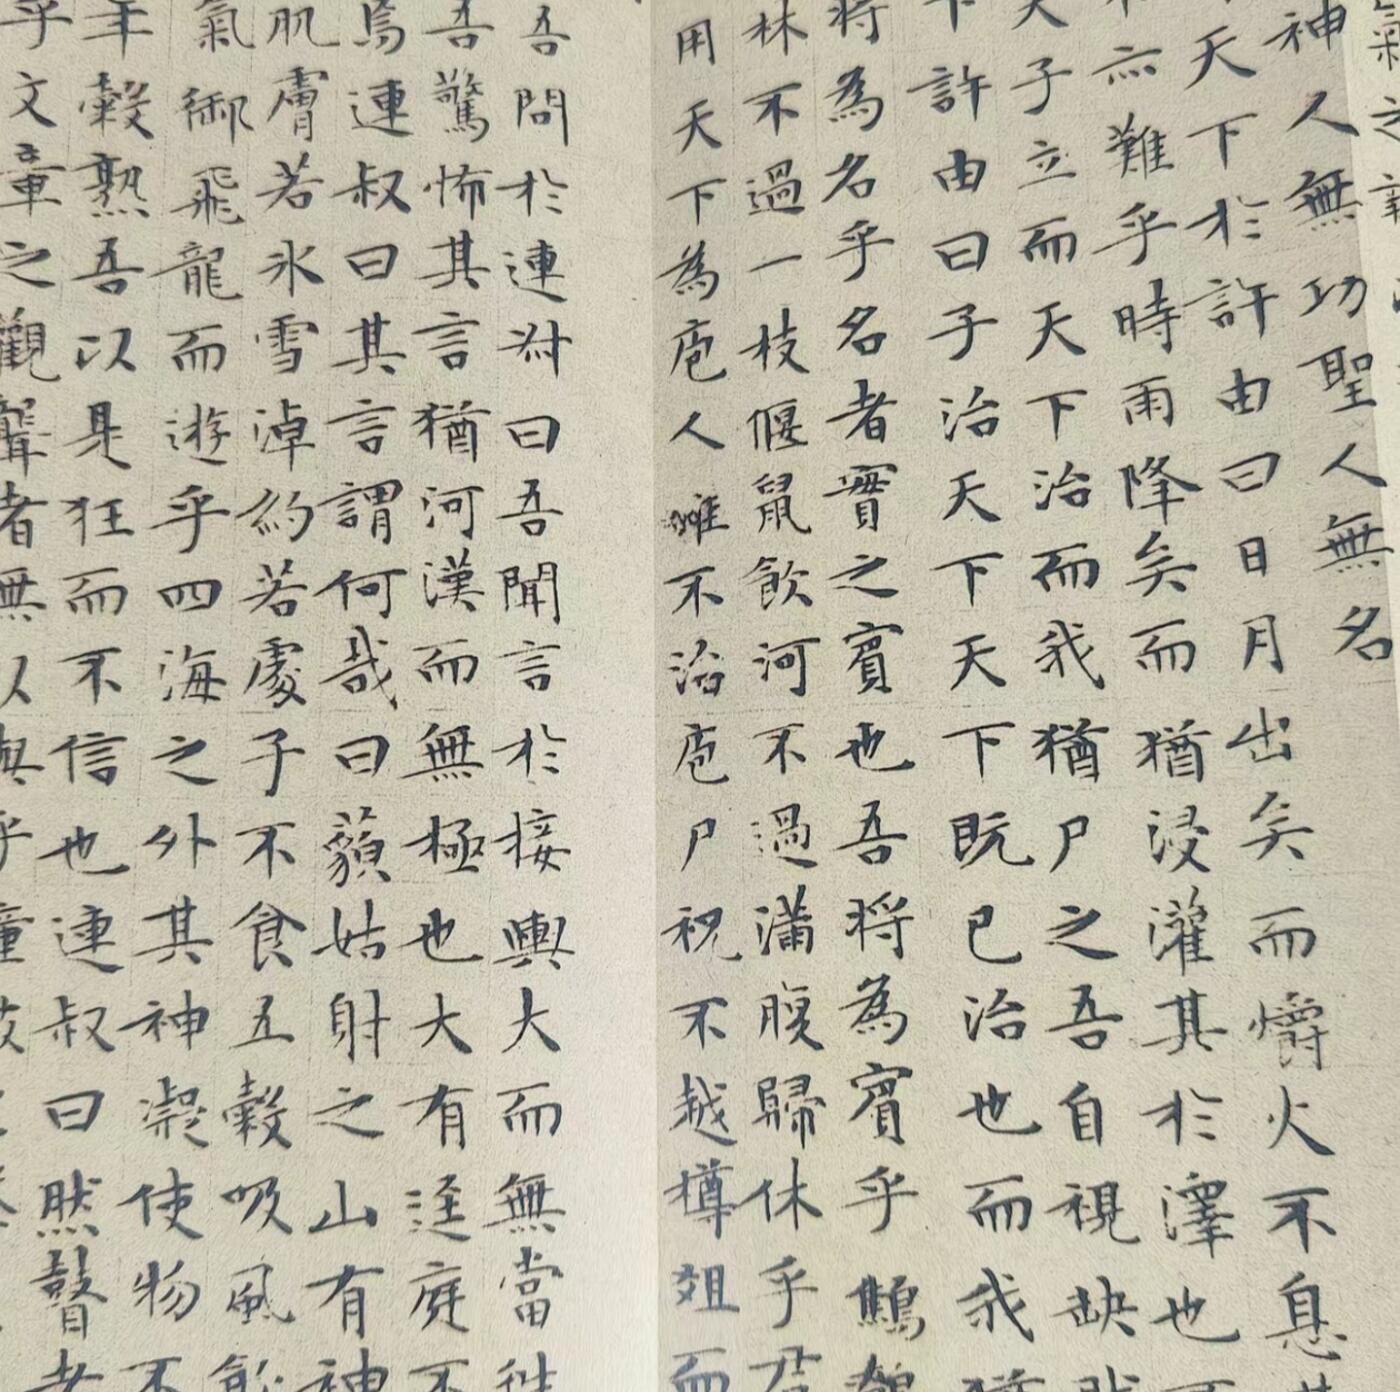 氣之
神人無功聖人無名
天下於許由曰日月出矣而爝火不息
亦難乎時雨降矣而猶浸灌其於澤也
天子立而天下治而我猶尸之吾自視缺
下許由曰子治天下天下既已治也而我猶
將為名乎名者實之賓也吾將為賓乎鷦鷯
林不過一枝偃鼠飲河不過滿腹歸休乎君
用天下為庖人雖不治庖尸祝不越樽俎而
吾問於連叔曰吾聞言於接輿大而無當往
吾驚怖其言猶河漢而無極也大有逕庭不
焉連叔曰其言謂何哉曰藐姑射之山有神
肌膚若冰雪淖約若處子不食五穀吸風飲
氣御飛龍而遊乎四海之外其神凝使物不
年穀熟吾以是狂而不信也連叔曰然瞽者
乎文章之觀聾者無以與乎鐘鼓